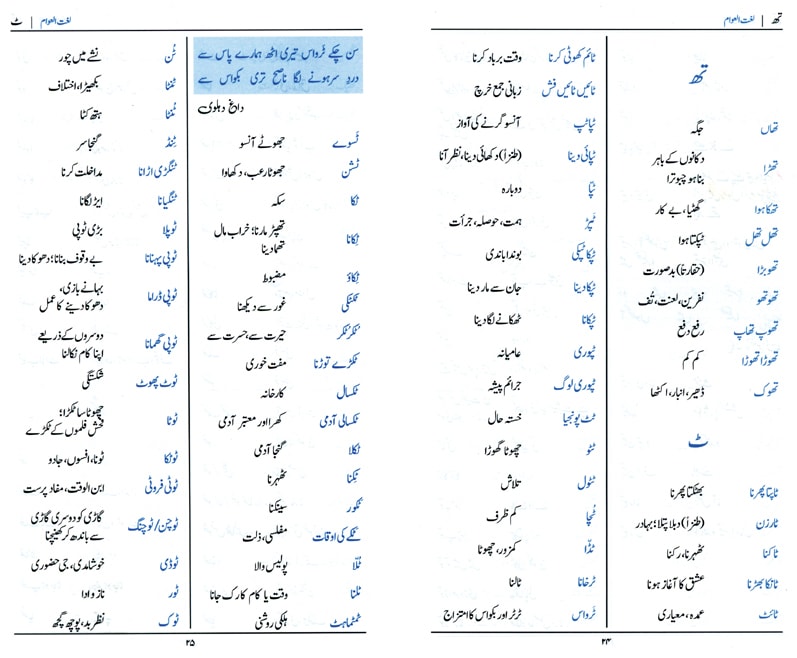 تھ | لغت العوام
تھ
تھاں جگہ
تھڑا دکانوں کے باہر
بنا ہو چبوترا
تھکا ہوا گھٹیا، بے کار
تھل تھل ٹپکتا ہوا
تھوبڑا (حقارتاً) بدصورت
تھوتھو نفرین، لعنت، تُف
تھوپ تھاپ رفع دفع
تھوڑا تھوڑا کم کم
تھوک ڈھیر، انبار، اکٹھا
ٹ
ٹاپتا پھرنا بھٹکتا پھرنا
ٹارزن (طنزاً) دبلا پتلا؛ بہادر
ٹاکنا ٹھہرنا، رکنا
ٹانکا بھڑنا عشق کا آغاز ہونا
ٹائٹ عمدہ، معیاری
ٹائم کھوٹی کرنا وقت برباد کرنا
ٹائیں ٹائیں فش زبانی جمع خرچ
ٹپاٹپ آنسو گرنے کی آواز
ٹپائی دینا (طنزاً) دکھائی دینا، نظر آنا
ٹپّا دوبارہ
ٹپّڑ ہمت، حوصلہ، جرأت
ٹپکا ٹپکی بوندا باندی
ٹپکا دینا جان سے مار دینا
ٹپکانا ٹھکانے لگا دینا
ٹپوری عامیانہ
ٹپوری لوگ جرائم پیشہ
ٹٹ پونجیا خستہ حال
ٹٹو چھوٹا گھوڑا
ٹٹول تلاش
ٹُچا کم ظرف
ٹڈّا کمزور، چھوٹا
ٹرخانا ٹالنا
ٹَرواس ٹرٹر اور بکواس کا امتزاج
۲۴
لغت العوام | ٹ
سن چکے ٹَرواس تیری اٹھ ہمارے پاس سے
دردِ سر ہونے لگا ناصح تری بکواس سے
داغ دہلوی
ٹسوے جھوٹے آنسو
ٹشن جھوٹا رعب، دکھاوا
ٹکا سکہ
ٹکانا تھپڑ مارنا؛ خراب مال
تھما دینا
ٹکاؤ مضبوط
ٹکٹکی غور سے دیکھنا
ٹکر ٹکر حیرت سے، حسرت سے
ٹکڑے توڑنا مفت خوری
ٹکسال کارخانہ
ٹکسالی آدمی کھرا اور معتبر آدمی
ٹکلا گنجا آدمی
ٹکنا ٹھہرنا
ٹکور سینکنا
ٹکے کی اوقات مفلسی، ذلت
ٹلّا پولیس والا
ٹلنا وقت یا کام کا رک جانا
ٹمٹماہٹ ہلکی روشنی
ٹُن نشے میں چور
ٹنٹا بکھیڑا، اختلاف
ٹُنٹا ہتھ کٹا
ٹِنڈ گنجا سر
ٹنگڑی اڑانا مداخلت کرنا
ٹنگیانا ایڑ لگانا
ٹوپلا بڑی ٹوپی
ٹوپی پہنانا بے وقوف بنانا؛ دھوکا دینا
ٹوپی ڈراما بہانے بازی،
دھوکا دینے کا عمل
ٹوپی گھمانا دوسروں کے ذریعے
اپنا کام نکالنا
ٹوٹ پھوٹ شکستگی
ٹوٹا چھوٹا سا ٹکڑا؛
فحش فلموں کے ٹکڑے
ٹوٹکا ٹونا، افسوں، جادو
ٹوٹی فروٹی ابن الوقت، مفاد پرست
ٹوچن/ٹوچنگ گاڑی کو دوسری گاڑی
سے باندھ کر کھینچنا
ٹوڈی خوشامدی، جی حضوری
ٹور ناز و ادا
ٹوک نظرِ بد، پوچھ گچھ
۲۵